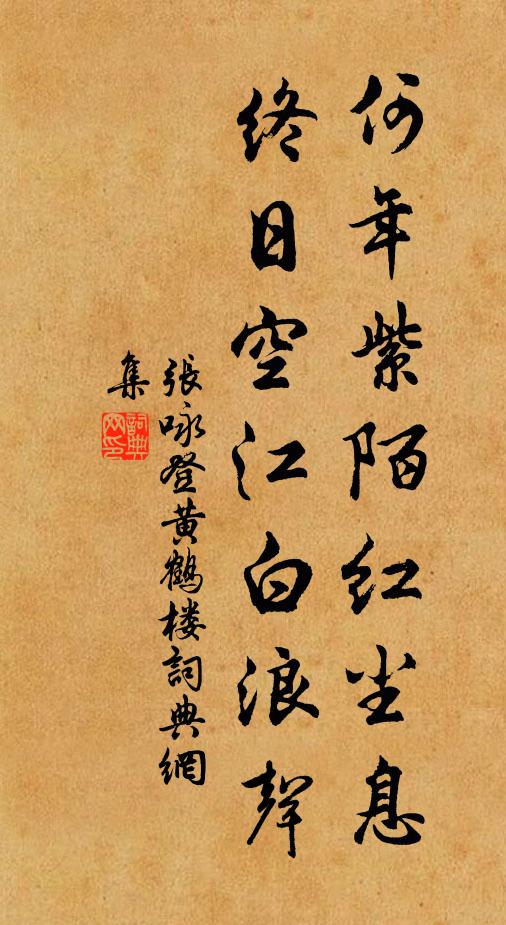 何年紫陌红尘息
终日空江白浪聲
張咏登黄鶴楼詞典網
集
詞典网印